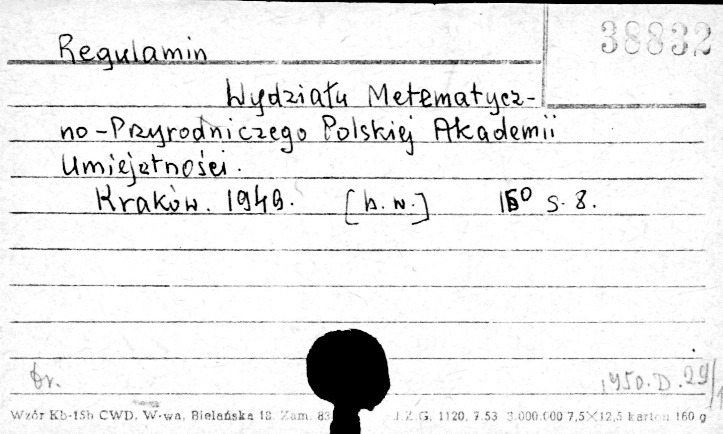 Regulamin
38832
Wydziału Metematycz-
no-Przyrodniczego Polskiej Akademii
Umiejętności.
Kraków. 1949. [b.w.] 16⁰ s. 8.
br.
1950.D.29/
Wzór Kb-15h CWD. W-wa, Bielańska 18. Zam. 83 J.Z.G. 1120. 7.53 3.000.000 7,5×12,5 karton 160 g